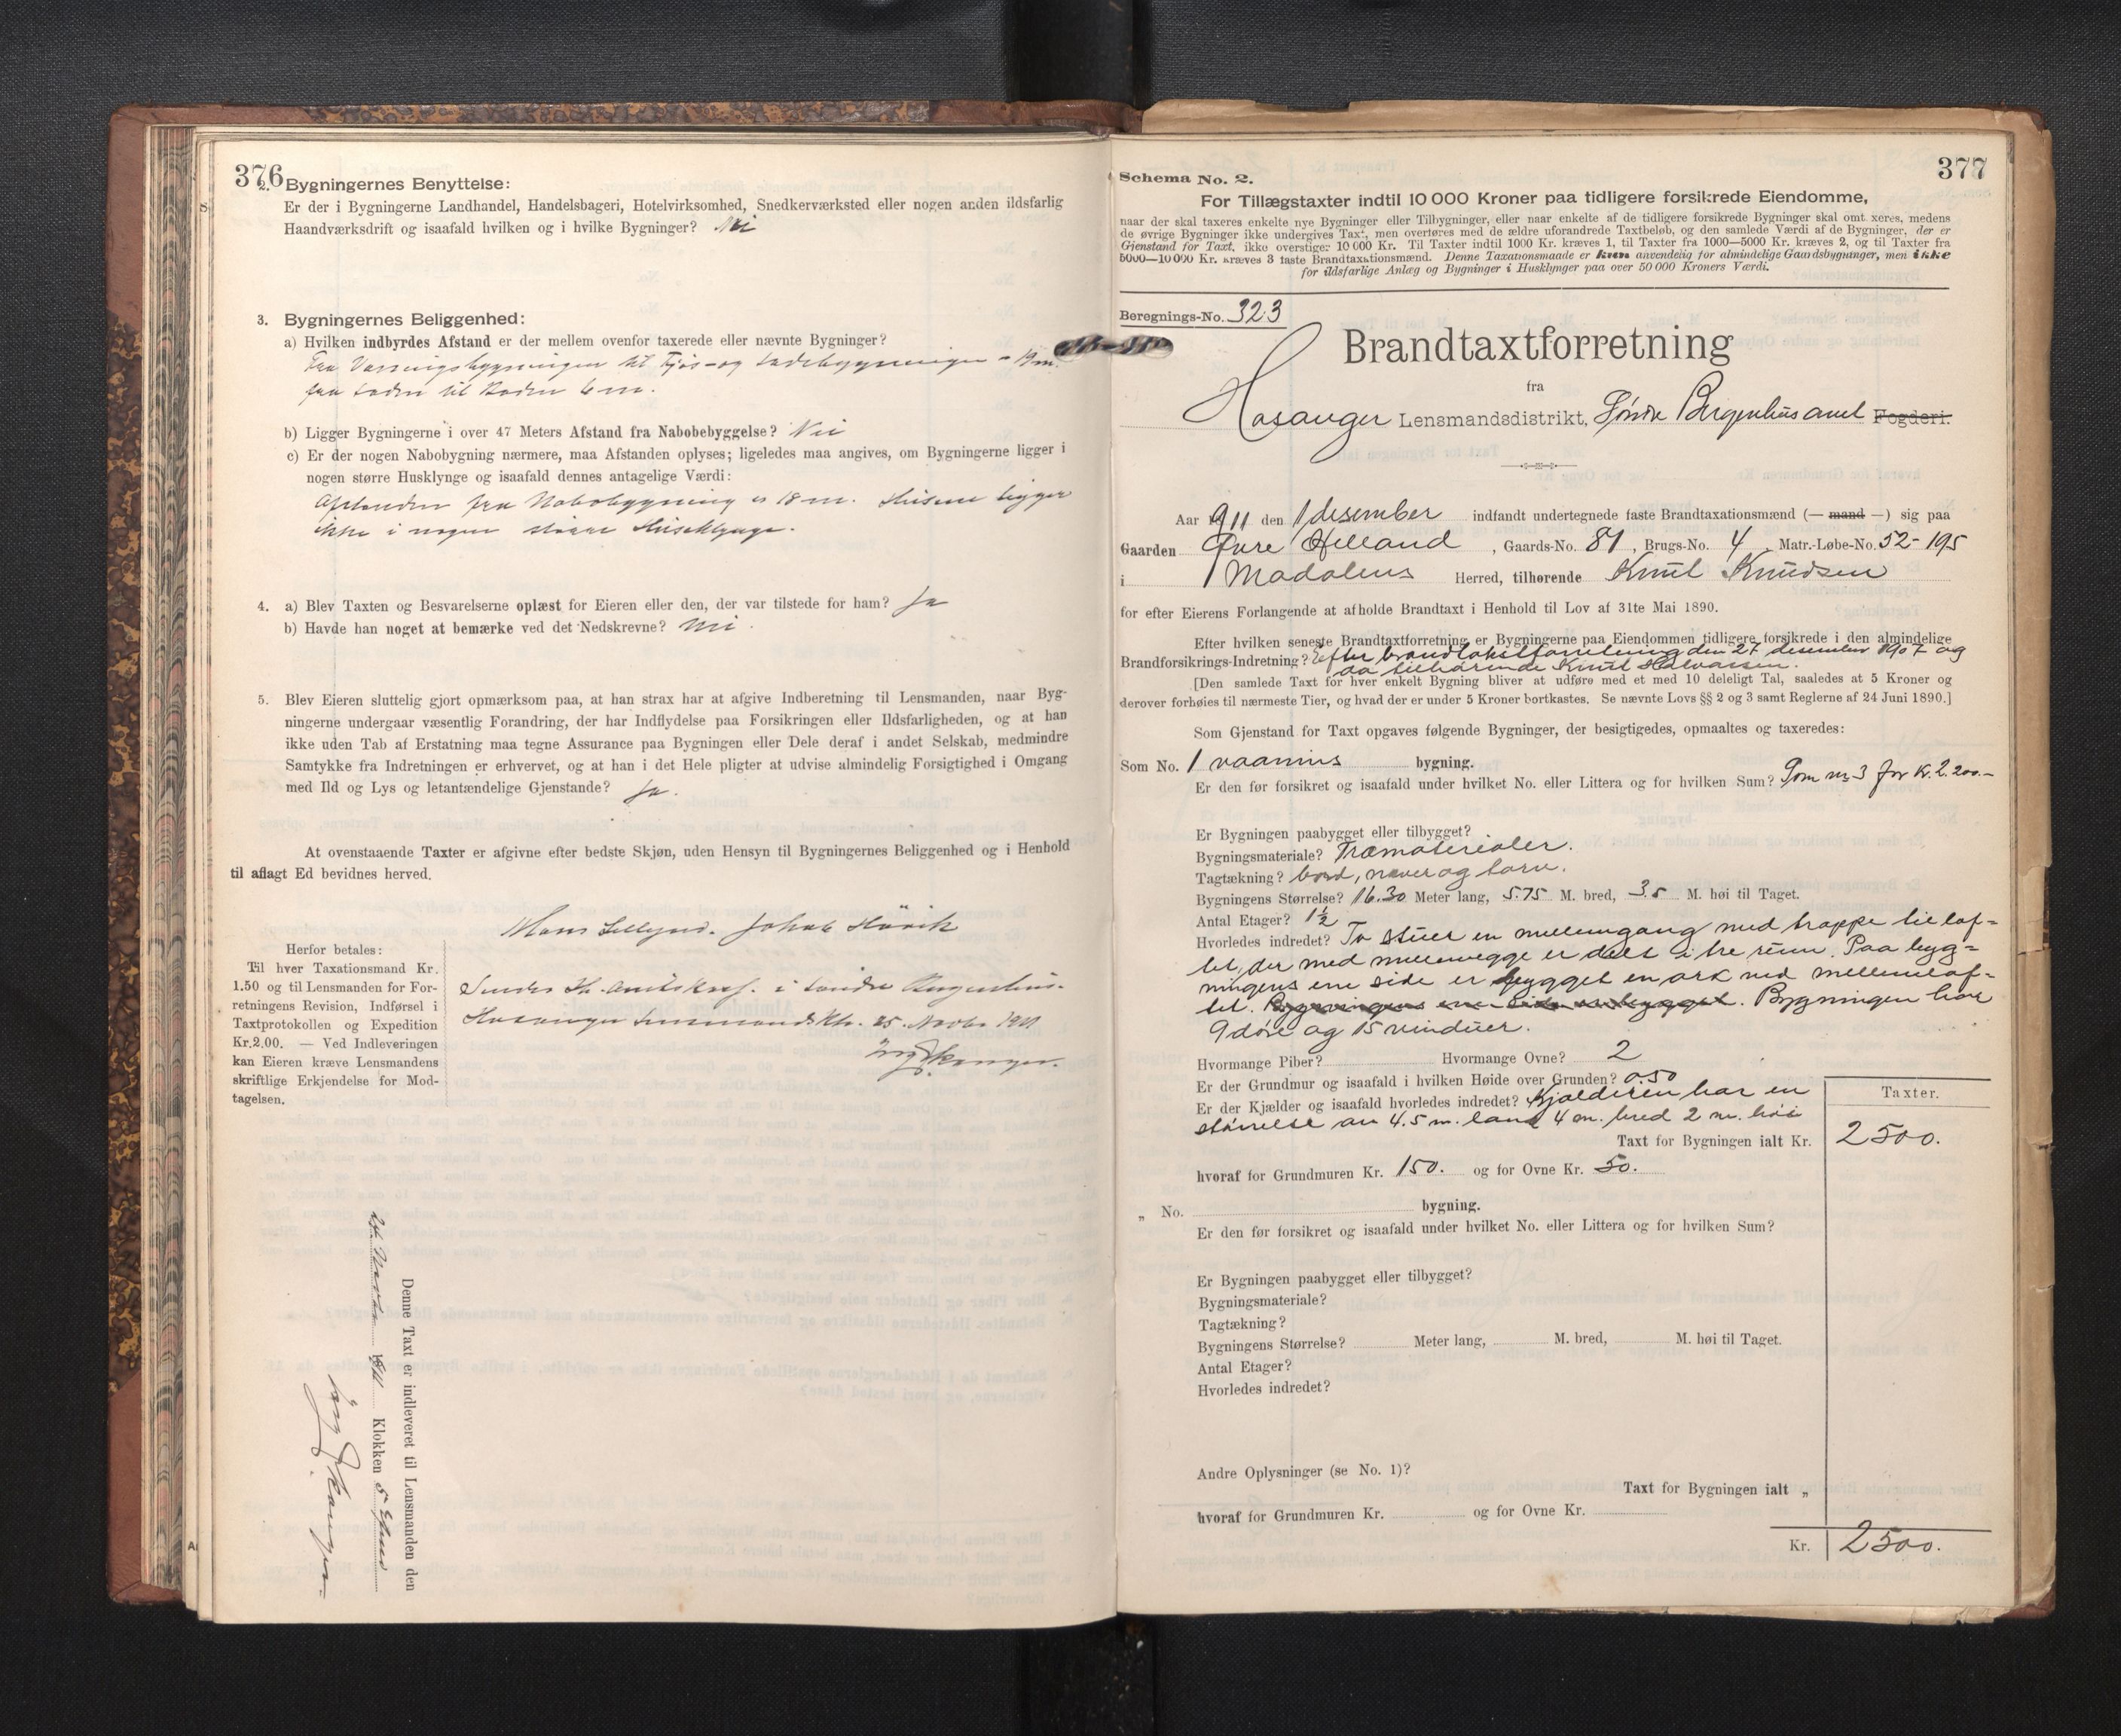 376
2. Bygningernes Benyttelse:
Er der i Bygningerne Landhandel, Handelsbageri, Hotelvirksomhed, Snedkerværksted eller nogen anden ildsfarlig
Haandværksdrift og isaafald hvilken og i hvilke Bygninger? Nei
3. Bygningernes Beliggenhed:
a) Hvilken indbyrdes Afstand er der mellem ovenfor taxerede eller nævnte Bygninger?
Fra Vaaningsbygningen til Fjøs- og Ladebygningen - 19 m.
fra Laden til Boden 6 m.
b) Ligger Bygningerne i over 47 Meters Afstand fra Nabobebyggelse? Nei
c) Er der nogen Nabobygning nærmere, maa Afstanden oplyses; ligeledes maa angives, om Bygningerne ligger i
nogen større Husklynge og isaafald dennes antagelige Værdi:
Afstanden fra Nabobygning er 18 m. Husene ligger
ikke i nogen større Husklynge.
4. a) Blev Taxten og Besvarelserne oplæst for Eieren eller den, der var tilstede for ham? Ja
b) Havde han noget at bemærke ved det Nedskrevne? Nei.
5. Blev Eieren sluttelig gjort opmærksom paa, at han strax har at afgive Indberetning til Lensmanden, naar Byg-
ningerne undergaar væsentlig Forandring, der har Indflydelse paa Forsikringen eller Ildsfarligheden, og at han
ikke uden Tab af Erstatning maa tegne Assurance paa Bygningen eller Dele deraf i andet Selskab, medmindre
Samtykke fra Indretningen er erhvervet, og at han i det Hele pligter at udvise almindelig Forsigtighed i Omgang
med Ild og Lys og letantændelige Gjenstande? Ja.
At ovenstaaende Taxter er afgivne efter bedste Skjøn, uden Hensyn til Bygningernes Beliggenhed og i Henhold
til aflagt Ed bevidnes herved.
Jakob
Herfor betales:
Til hver Taxationsmand Kr.
1.50 og til Lensmanden for For-
retningens Revision, Indførsel i
Taxtprotokollen og Expedition
Kr. 2.00. — Ved Indleveringen
kan Eieren kræve Lensmandens
skriftlige Erkjendelse for Mod-
tagelsen.
Sendes Hr. i Søndre Bergenhus.
Hosanger Lensmandsktr. 25. Novbr 1911
Denne Taxt er indleveret til Lensmanden den
1911 Klokken 5 Efmd
377
Schema No. 2.
For Tillægstaxter indtil 10 000 Kroner paa tidligere forsikrede Eiendomme,
naar der skal taxeres enkelte nye Bygninger eller Tilbygninger, eller naar enkelte af de tidligere forsikrede Bygninger skal omt xeres, medens
de øvrige Bygninger ikke undergives Taxt, men overtøres med de ældre uforandrede Taxtbeløb, og den samlede Værdi af de Bygninger, der er
Gjenstand for Taxt, ikke overstiger 10 000 Kr. Til Taxter indtil 1000 Kr. kræves 1, til Taxter fra 1000—5000 Kr. kræves 2, og til Taxter fra
5000—10 000 Kr. kræves 3 faste Brandtaxationsmænd. Denne Taxationsmaade er kun anvendelig for almindelige Gaardsbygninger, men ikke
for ildsfarlige Anlæg og Bygninger i Husklynger paa over 50 000 Kroners Værdi.
Beregnings-No. 323
Brandtaxtforretning
fra
Hosanger Lensmandsdistrikt, Søndre Bergenhus amt Fogderi.
Aar 1911 den 1 desember indfandt undertegnede faste Brandtaxationsmænd (— mand —) sig paa
Gaarden Øvre Helland, Gaards-No. 81, Brugs-No. 4, Matr.-Løbe-No. 52-195
i Modalens Herred, tilhørende Knut Knudsen
for efter Eierens Forlangende at afholde Brandtaxt i Henhold til Lov af 31te Mai 1890.
Efter hvilken seneste Brandtaxtforretning er Bygningerne paa Eiendommen tidligere forsikrede i den almindelige
Brandforsikrings-Indretning? Efter brandtakstforretning den 27 desember 1907 og
da tilhørende Knut Halvorsen.
[Den samlede Taxt for hver enkelt Bygning bliver at udføre med et med 10 deleligt Tal, saaledes at 5 Kroner og
derover forhøies til nærmeste Tier, og hvad der er under 5 Kroner bortkastes. Se nævnte Lovs §§ 2 og 3 samt Reglerne af 24 Juni 1890.]
Som Gjenstand for Taxt opgaves følgende Bygninger, der besigtigedes, opmaaltes og taxeredes:
Som No. 1 vaanings bygning.
Er den før forsikret og isaafald under hvilket No. eller Littera og for hvilken Sum? Som no 3 for Kr. 2.200.-
Er Bygningen paabygget eller tilbygget?
Bygningsmateriale? Træmaterialer.
Tagtækning? bord, næver og torv.
Bygningens Størrelse? 16.30 Meter lang, 5.75 M. bred, 3.5 M. høi til Taget.
Antal Etager? 1½
Hvorledes indredet? To stuer en mellemgang med trappe til lof-
tet, der med mellemvegge er delt i tre rum. Paa byg-
ningens ene side er bygget en ark med mellemlof-
tet. Bygningens ene side er bygget. Bygningen har
9 døre og 15 vinduer.
Hvormange Piber? Hvormange Ovne? 2
Er der Grundmur og isaafald i hvilken Høide over Grunden? 0.50
Er der Kjælder og isaafald hvorledes indredet? Kjælderen har en
størrelse av 4.5 m. lang 4 m. bred 2 m. høi
Taxter.
Taxt for Bygningen ialt Kr. 2500.
hvoraf for Grundmuren Kr. 150. og for Ovne Kr. 50.
„ No. bygning.
Er den før forsikret og isaafald under hvilket No. eller Littera og for hvilken Sum?
Er Bygningen paabygget eller tilbygget?
Bygningsmateriale?
Tagtækning?
Bygningens Størrelse? Meter lang, M. bred, M. høi til Taget.
Antal Etager?
Hvorledes indredet?
Andre Oplysninger (se No. 1)?
Taxt for Bygningen ialt „
hvoraf for Grundmuren Kr. og for Ovne Kr.
Kr. 2500.